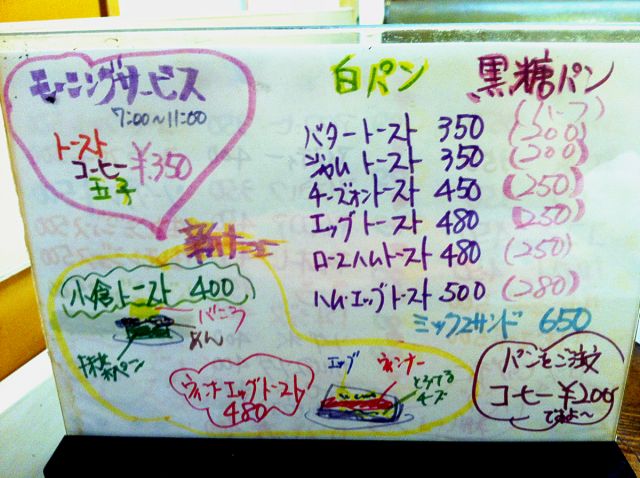 モーニングサービス
7:00～11:00
トースト
コーヒー ¥350
玉子
白パン 黒糖パン
(ハーフ)
バタートースト 350 (200)
ジャムトースト 350 (200)
チーズオントースト 450 (250)
エッグトースト 480 (250)
ロースハムトースト 480 (250)
ハム・エッグトースト 500 (280)
ミックスサンド 650
小倉トースト 400
バニラ
あん
抹茶パン
ウィンナーエッグトースト
480
エッグ
ウィンナー
とろける
チーズ
パンをご注文
コーヒー ¥200
ですよ～